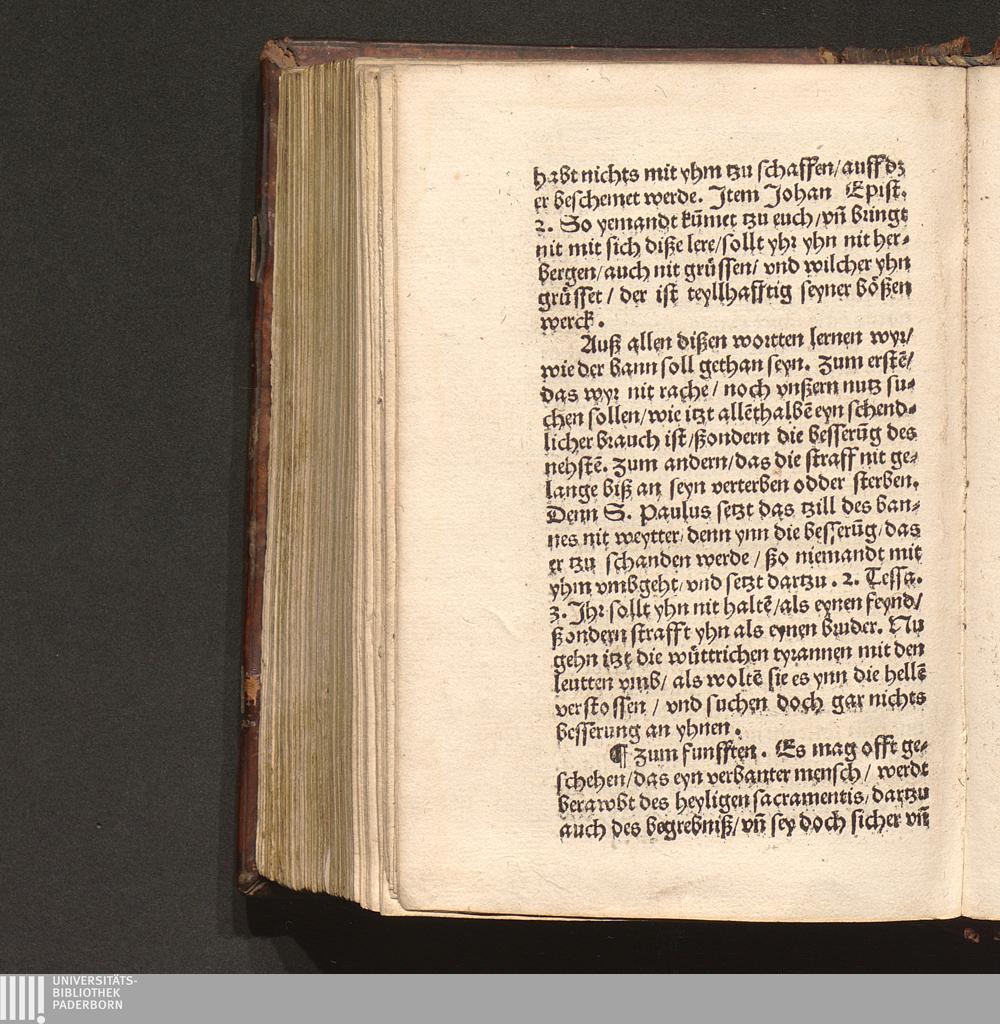 habt nichts mit yhm tzu schaffen/auff dz
er beschemet werde. Item Johan Epist.
2. So yemandt kūmet tzu euch/vn̄ bringt
nit mit sich diße lere/sollt yhr yhn nit her⸗
bergen/auch nit grüssen/ vnd wilcher yhn
grüsset / der ist teyllhafftig seyner bößen
werck.
Auß allen dißen wortten lernen wyr/
wie der bann soll gethan seyn. Zum erstē/
das wyr nit rache / noch vnßern nutz su⸗
chen sollen/wie itzt allēthalbē eyn schend⸗
licher brauch ist/ßondern die besserūg des
nehstē. Zum andern/das die straff nit ge⸗
lange biß an seyn verterben odder sterben.
Denn S. Paulus setzt das tzill des ban⸗
nes nit weytter/denn ynn die besserūg/das
er tzu schanden werde / ßo niemandt mit
yhm vmbgeht/vnd setzt dartzu. 2. Tessa.
3. Ihr sollt yhn nit haltē/als eynen feynd/
ßondern strafft yhn als eynen bruder. Nu
gehn itzt die wüttrichen tyrannen mit den
leutten vmb/ als woltē sie es ynn die hellē
verstossen / vnd suchen doch gar nichts
besserung an yhnen.
¶ Zum funfften. Es mag offt ge⸗
schehen/das eyn verbanter mensch/ werdt
berawbt des heyligen sacramentis/dartzu
auch des begrebniß/vn̄ sey doch sicher vn̄
UNIVERSITÄTS-
BIBLIOTHEK
PADERBORN